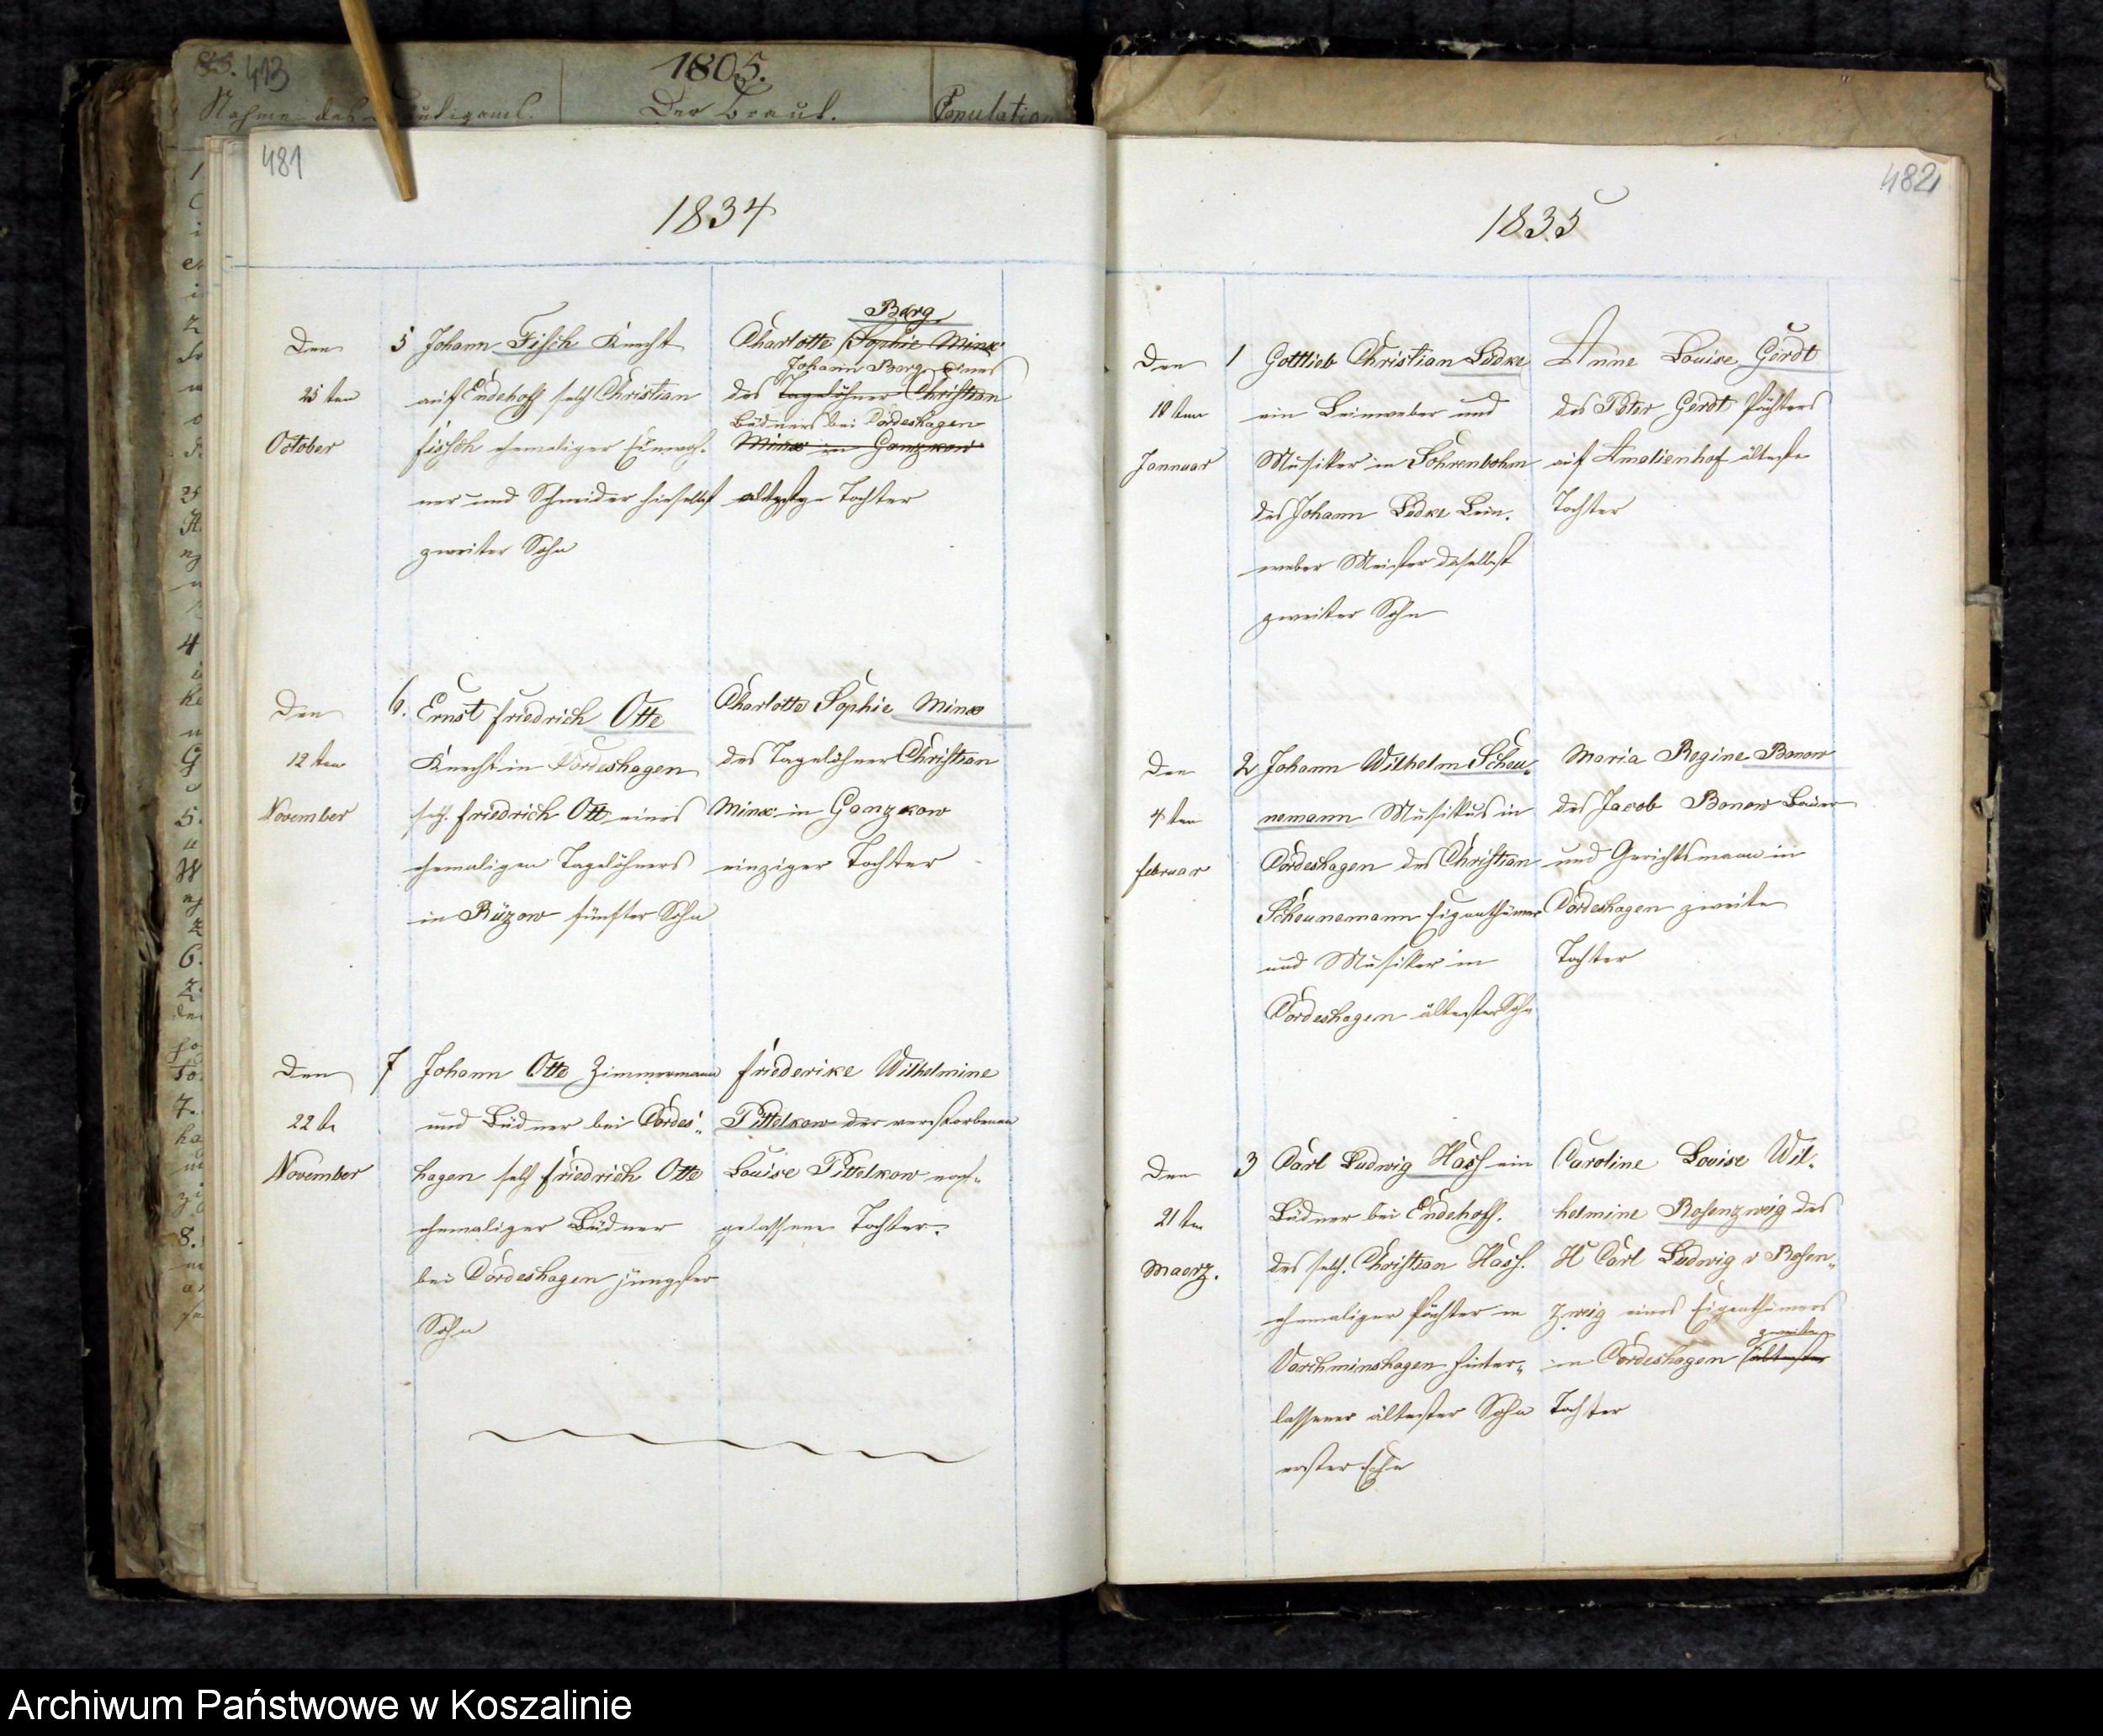 413
1805.
Nahme des Bräutigams.
Der Braut.
Copulation
481
1834
Den 5 Johann Fisch Knecht
25 ten auf Endehoff sel. Christian
October Fisch ehemaliger Einwoh-
ner und Schneider hieselbst
zweiter Sohn
Berg
Charlotte Sophie Minx
Johann Berg eines
des Tagelöhner Christian
Büdners bei Cordeshagen
Minx in Ganzkow
älteste Tochter
Den 6. Ernst Friedrich Otte
12 ten Knecht in Cordeshagen
November sel. Friedrich Ott eines
ehemaligen Tagelöhners
in Rützow fünfter Sohn
Charlotte Sophie Minx
des Tagelöhner Christian
Minx in Ganzkow
einziger Tochter
Den 7 Johann Otto Zimmermann
22 t. und Büdner bei Cordes-
November hagen sel. Friedrich Otto
ehemaliger Büdner
bei Cordeshagen jüngster
Sohn
Friederike Wilhelmine
Pittelkow der verstorbenen
Louise Pittelkow nach-
gelassene Tochter.
482
1835
Den 1 Gottlieb Christian Lüdke
18 ten ein Leinweber und
Januar Musiker in Sohrenbohm
des Johann Lüdke Lein-
weber Meister daselbst
zweiter Sohn
Anne Louise Gerdt
des Peter Gerdt Pächters
auf Amalienhof älteste
Tochter
Den 2 Johann Wilhelm Scheu-
4 ten nemann Musikus in
Februar Cordeshagen des Christian
Scheunemann Eigenthümer
und Musiker in
Cordeshagen ältester Sohn
Maria Regine Bonow
des Jacob Bonow Bauer
und Gerichtsmann in
Cordeshagen zweite
Tochter
Den 3 Carl Ludwig Hass ein
21 ten Büdner bei Endehoff.
Maerz. des sel. Christian Hass.
ehemaliger Pächter in
Varchminshagen hinter-
lassener ältester Sohn
erster Ehe
Caroline Louise Wil-
helmine Rosenzweig des
H Carl Ludwig v Rosen-
zweig eines Eigenthümers
zweite
in Cordeshagen ältester
Tochter
Archiwum Państwowe w Koszalinie